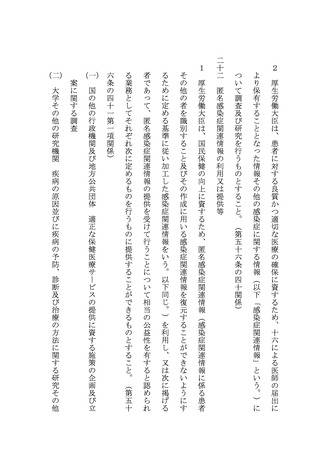 ２　厚生労働大臣は、患者に対する良質かつ適切な医療の確保に資するため、十六による医師の届出に
より保有することとなった情報その他の感染症に関する情報（以下「感染症関連情報」という。）に
ついて調査及び研究を行うものとすること。（第五十六条の四十関係）
二十二　匿名感染症関連情報の利用又は提供等
１　厚生労働大臣は、国民保健の向上に資するため、匿名感染症関連情報（感染症関連情報に係る患者
その他の者を識別すること及びその作成に用いる感染症関連情報を復元することができないようにす
るために定める基準に従い加工した感染症関連情報をいう。以下同じ。）を利用し、又は次に掲げる
者であって、匿名感染症関連情報の提供を受けて行うことについて相当の公益性を有すると認められ
る業務としてそれぞれ次に定めるものを行うものに提供することができるものとすること。（第五十
六条の四十一第一項関係）
㈠　国の他の行政機関及び地方公共団体　適正な保健医療サービスの提供に資する施策の企画及び立
案に関する調査
㈡　大学その他の研究機関　疾病の原因並びに疾病の予防、診断及び治療の方法に関する研究その他